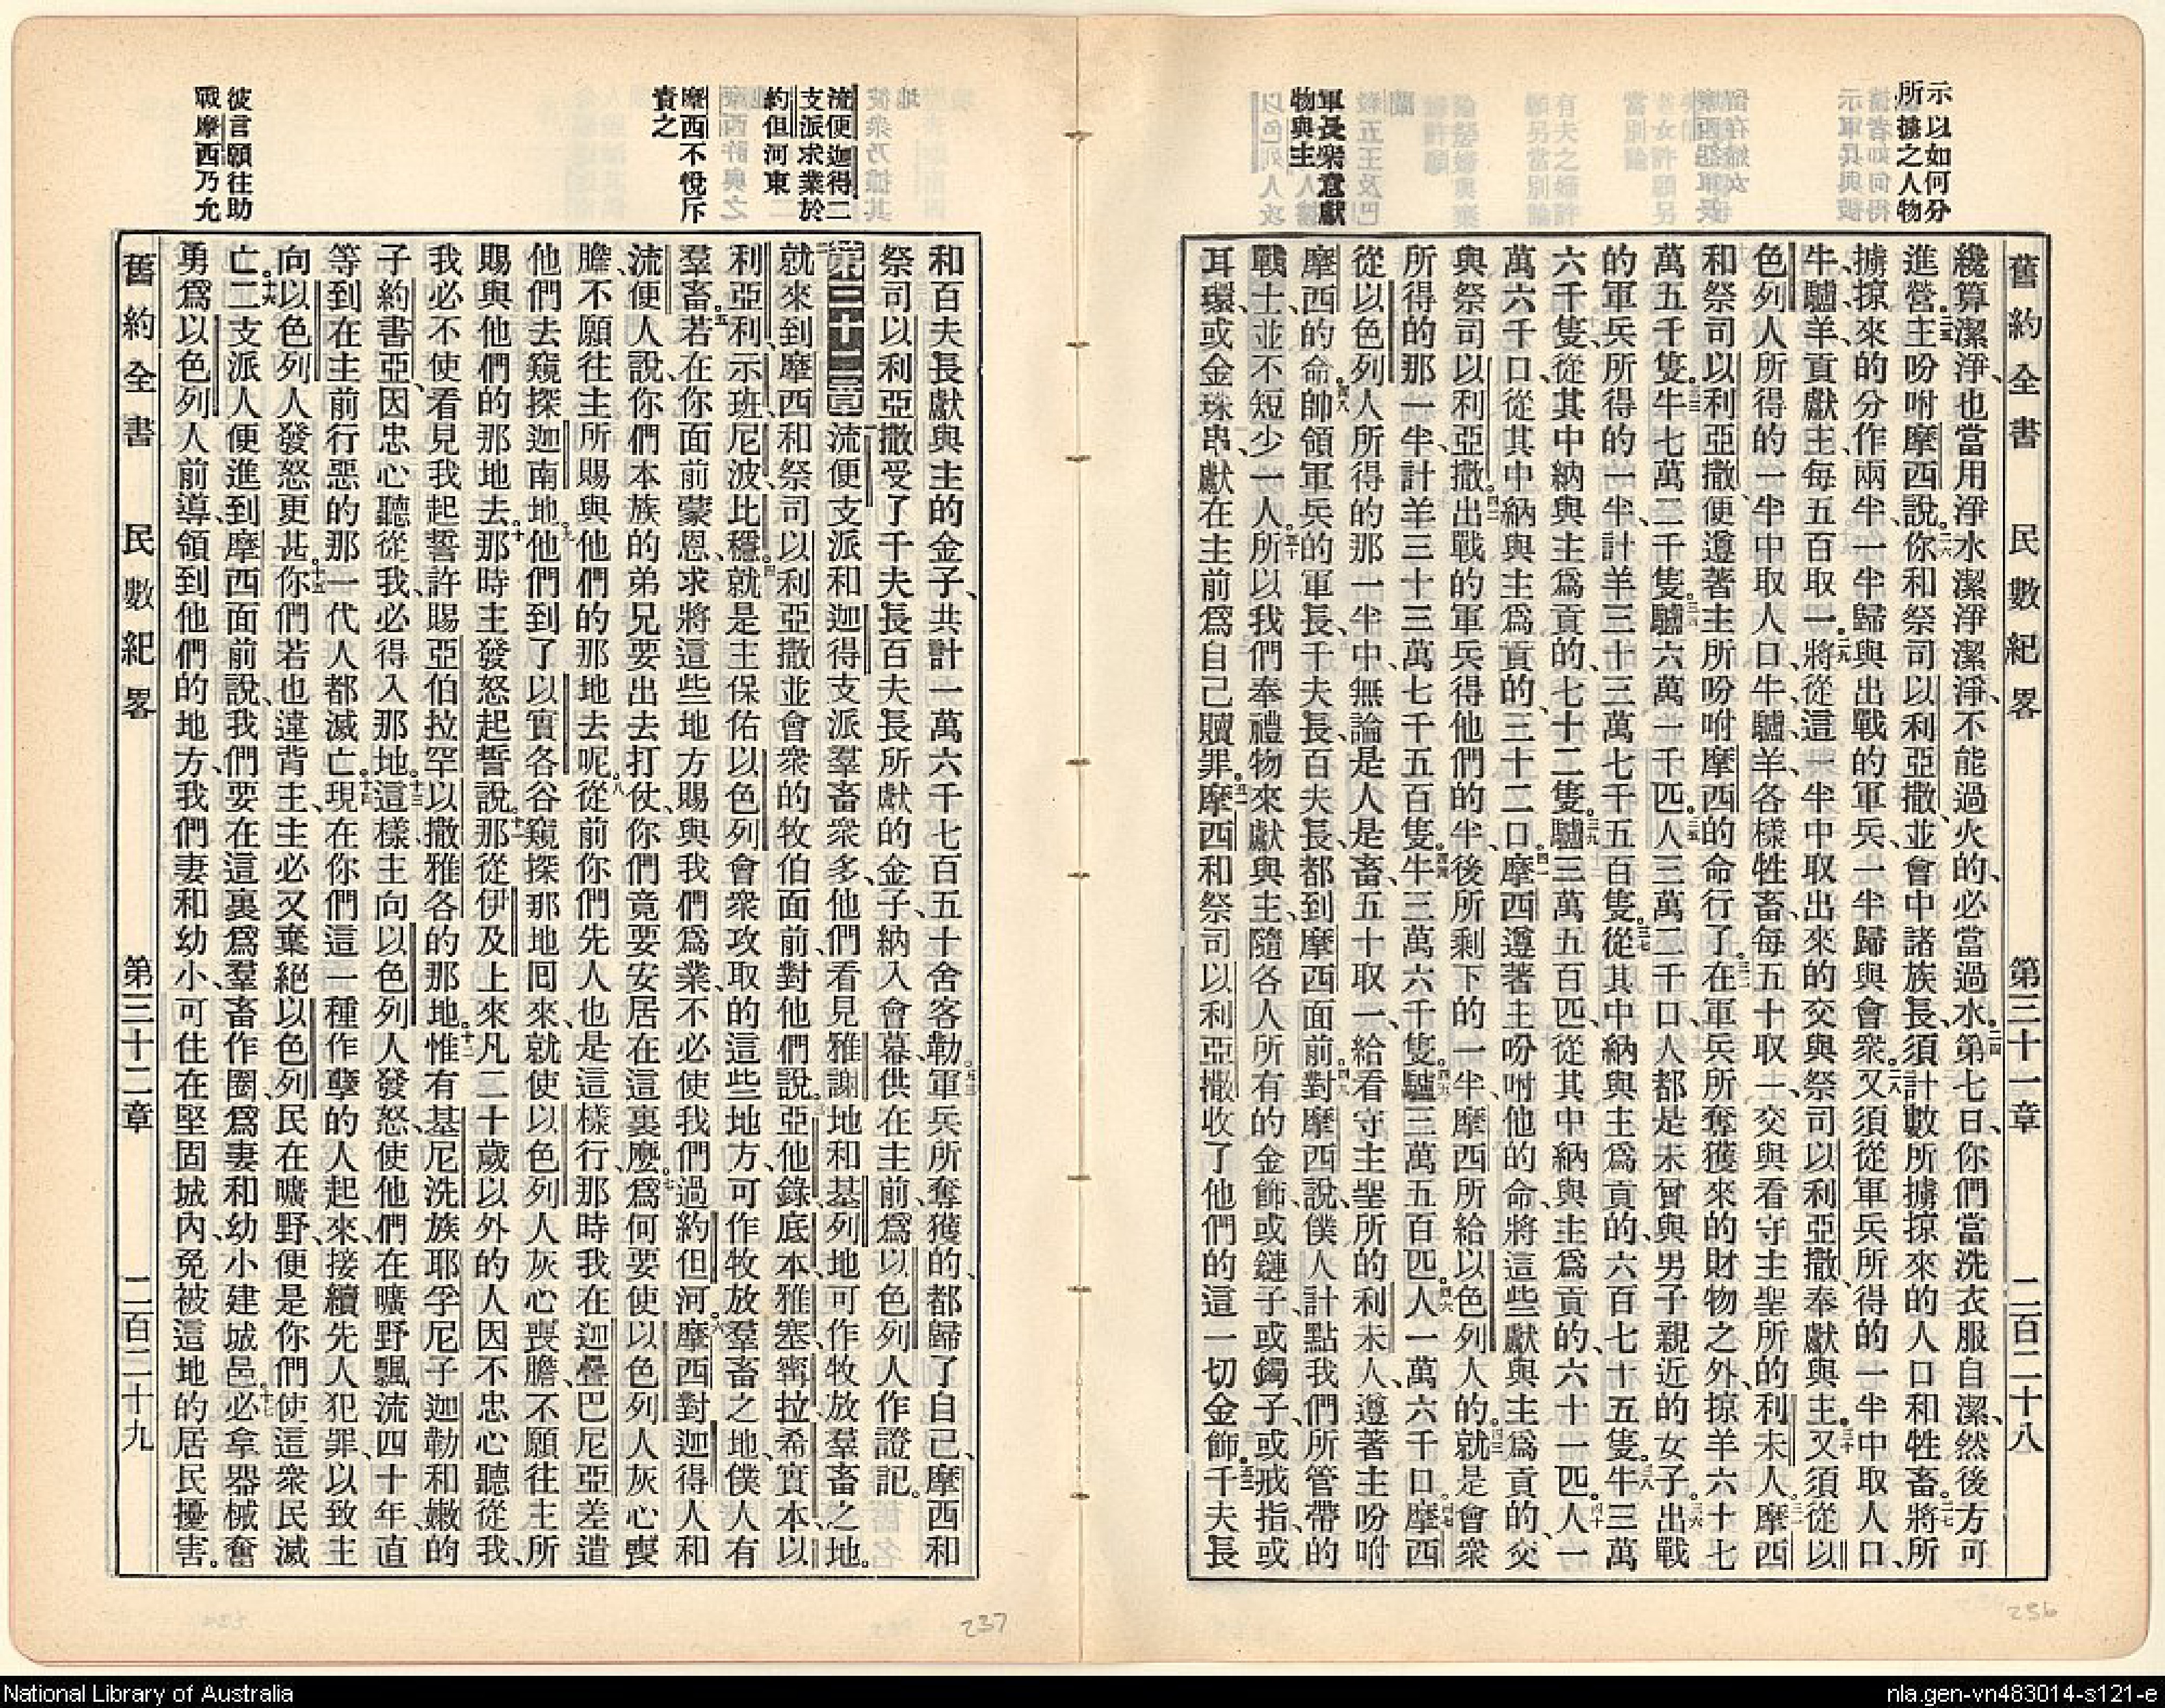 示以如何分
所擄之人物
軍長衆意獻
物與主
舊約全書 民數紀畧 第三十一章 二百二十八
纔算潔淨、也當用淨水潔淨潔淨、不能過火的、必當過水。二四第七日、你們當洗衣服自潔、然後方可
進營。二五主吩咐摩西說、二六你和祭司以利亞撒、並會中諸族長、須計數所擄掠來的人口和牲畜、二七將所
擄掠來的分作兩半、一半歸與出戰的軍兵、一半歸與會衆。二八又須從軍兵所得的一半中取人口、
牛、驢、羊、貢獻主、每五百取一、二九將從這一半中取出來的交與祭司以利亞撒、奉獻與主。三十又須從以
色列人所得的一半中取人口、牛、驢、羊、各樣牲畜、每五十取一、交與看守主聖所的利未人。三一摩西
和祭司以利亞撒、便遵著主所吩咐摩西的命行了。三二在軍兵所奪獲來的財物之外、掠羊六十七
萬五千隻、三三牛七萬二千隻、三四驢六萬一千匹、三五人三萬二千口、人都是未曾與男子親近的女子。三六出戰
的軍兵所得的一半、計羊三十三萬七千五百隻。三七從其中納與主爲貢的、六百七十五隻、三八牛三萬
六千隻、從其中納與主爲貢的、七十二隻。三九驢三萬五百匹、從其中納與主爲貢的、六十一匹。四十人一
萬六千口、從其中納與主爲貢的、三十二口。四一摩西遵著主吩咐他的命、將這些獻與主爲貢的、交
與祭司以利亞撒。四二出戰的軍兵得他們的半、後所剩下的一半、摩西所給以色列人的、四三就是會衆
所得的那一半、計羊三十三萬七千五百隻。四四牛三萬六千隻。四五驢三萬五百匹。四六人一萬六千口。四七摩西
從以色列人所得的那一半中、無論是人是畜、五十取一、給看守主聖所的利未人、遵著主吩咐
摩西的命。四八帥領軍兵的軍長、千夫長、百夫長、都到摩西面前。四九對摩西說、僕人計點我們所管帶的
戰士、並不短少一人。五十所以我們奉禮物來獻與主、隨各人所有的金飾、或鏈子、或鐲子、或戒指、或
耳環、或金珠串、獻在主前爲自己贖罪。五一摩西和祭司以利亞撒收了他們的這一切金飾。五二千夫長
流便迦得二
支派求業於
約但河東
摩西不悅斥
責之
彼言願往助
戰摩西乃允
和百夫長獻與主的金子、共計一萬六千七百五十舍客勒。五三軍兵所奪獲的、都歸了自己、摩西和
祭司以利亞撒受了千夫長百夫長所獻的金子、納入會幕、供在主前、爲以色列人作證記。
第三十二章 流便支派和迦得支派羣畜衆多、他們看見雅謝地和基列地、可作牧放羣畜之地。
就來到摩西、和祭司以利亞撒並會衆的牧伯面前、對他們說、三亞他錄、底本、雅塞、甯拉、希實本、以
利亞利、示班、尼波、比穩、四就是主保佑以色列會衆攻取的這些地方、可作牧放羣畜之地、僕人有
羣畜、五若在你面前蒙恩、求將這些地方賜與我們爲業、不必使我們過約但河。六摩西對迦得人和
流便人說、你們本族的弟兄要出去打仗、你們竟要安居在這裏麼、七爲何要使以色列人灰心喪
膽、不願往主所賜與他們的那地去呢。八從前你們先人也是這樣行、那時我在迦疊巴尼亞差遣
他們去窺探迦南地、九他們到了以實各谷、窺探那地回來、就使以色列人灰心喪膽、不願往主所
賜與他們的那地去。十那時主發怒起誓說、十一那從伊及上來凡二十歲以外的人、因不忠心聽從我、
我必不使看見我起誓許賜亞伯拉罕以撒雅各的那地。十二惟有基尼洗族耶孚尼子迦勒和嫩的
子約書亞、因忠心聽從我、必得入那地。十三這樣主向以色列人發怒、使他們在曠野飄流四十年、直
等到在主前行惡的那一代人都滅亡。十四現在你們這一種作孽的人起來、接續先人犯罪、以致主
向以色列人發怒更甚。十五你們若也違背主、主必又棄絕以色列民在曠野、便是你們使這衆民滅
亡。十六二支派人便進到摩西面前說、我們要在這裏爲羣畜作圈、爲妻和幼小建城邑、十七必拿器械奮
勇爲以色列人前導、領到他們的地方、我們妻和幼小、可住在堅固城內、免被這地的居民擾害。
舊約全書 民數紀畧 第三十二章 二百二十九
237
236
National Library of Australia
nla.gen-vn483014-s121-e